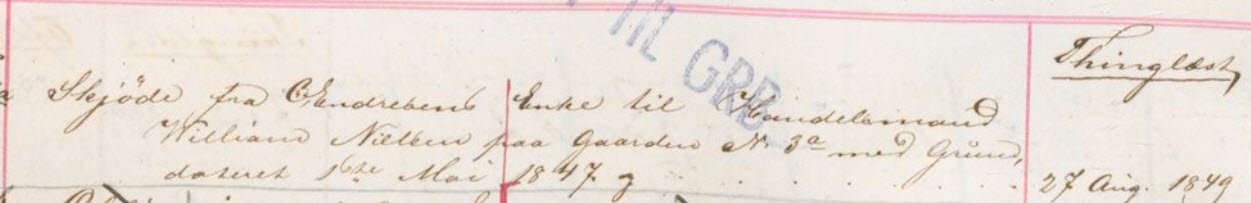 Thinglæst
Skjöde fra C. Endresens Enke til Handelsmand
William Nielsen paa Gaarden N. 3a med Grund,
dateret 16de Mai 1847
27 Aug. 1849
TIL GRB